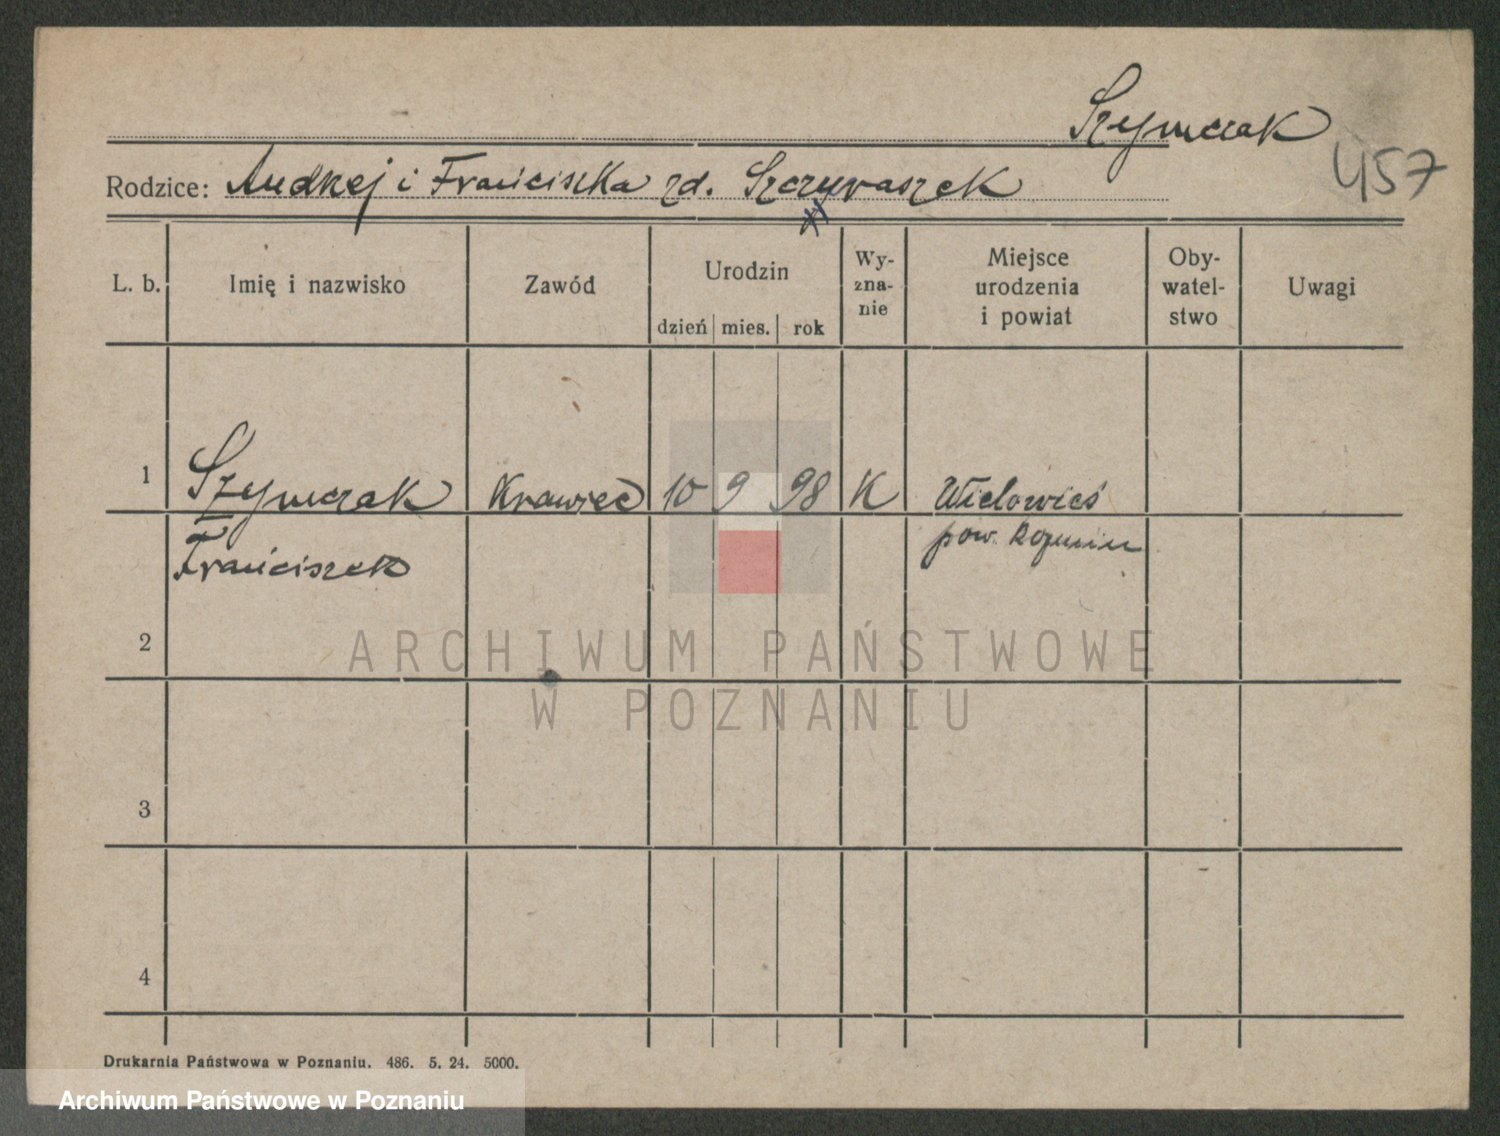 Szymczak
457
Rodzice: Andrzej i Franciszka zd. Szczyraszek
L. b.
Imię i nazwisko
Zawód
Urodzin
dzień mies. rok
Wy-
zna-
nie
Miejsce
urodzenia
i powiat
Oby-
watel-
stwo
Uwagi
1 Szymczak Krawiec 10 9 98 K Wielowieś
Franciszek pow.
2
3
4
ARCHIWUM PAŃSTWOWE
W POZNANIU
Drukarnia Państwowa w Poznaniu. 486. 5. 24. 5000.
Archiwum Państwowe w Poznaniu